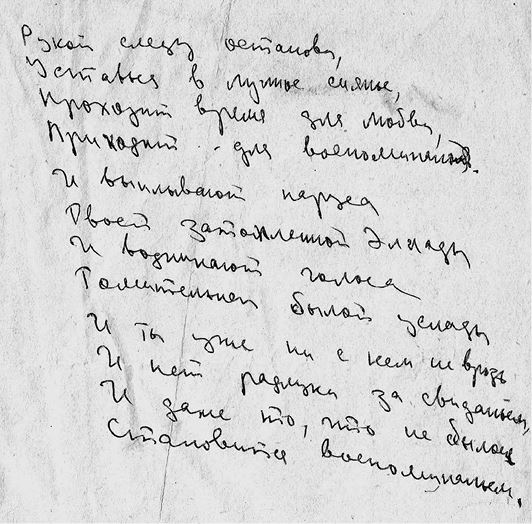 Рукой слезу останови,
Уставься в лунное сиянье,
Проходит время для любви,
Приходит - для воспоминаний.
И выплывают паруса
Твоей затопленной Эллады
И возникают голоса
Томительной былой услады
И ты уже ни с кем не врозь
И нет разлуки за свиданьем,
И даже то, что не былось
Становится воспоминаньем.